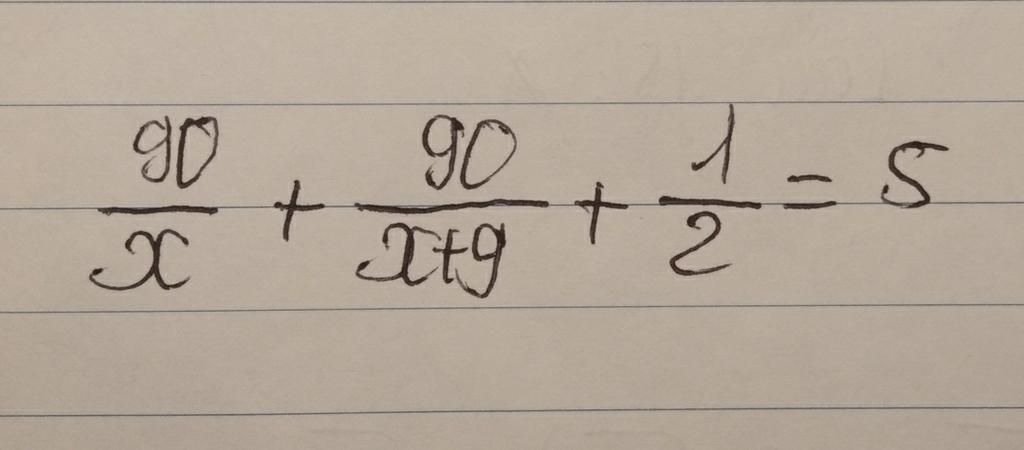 90/x + 90/(x+9) + 1/2 = 5